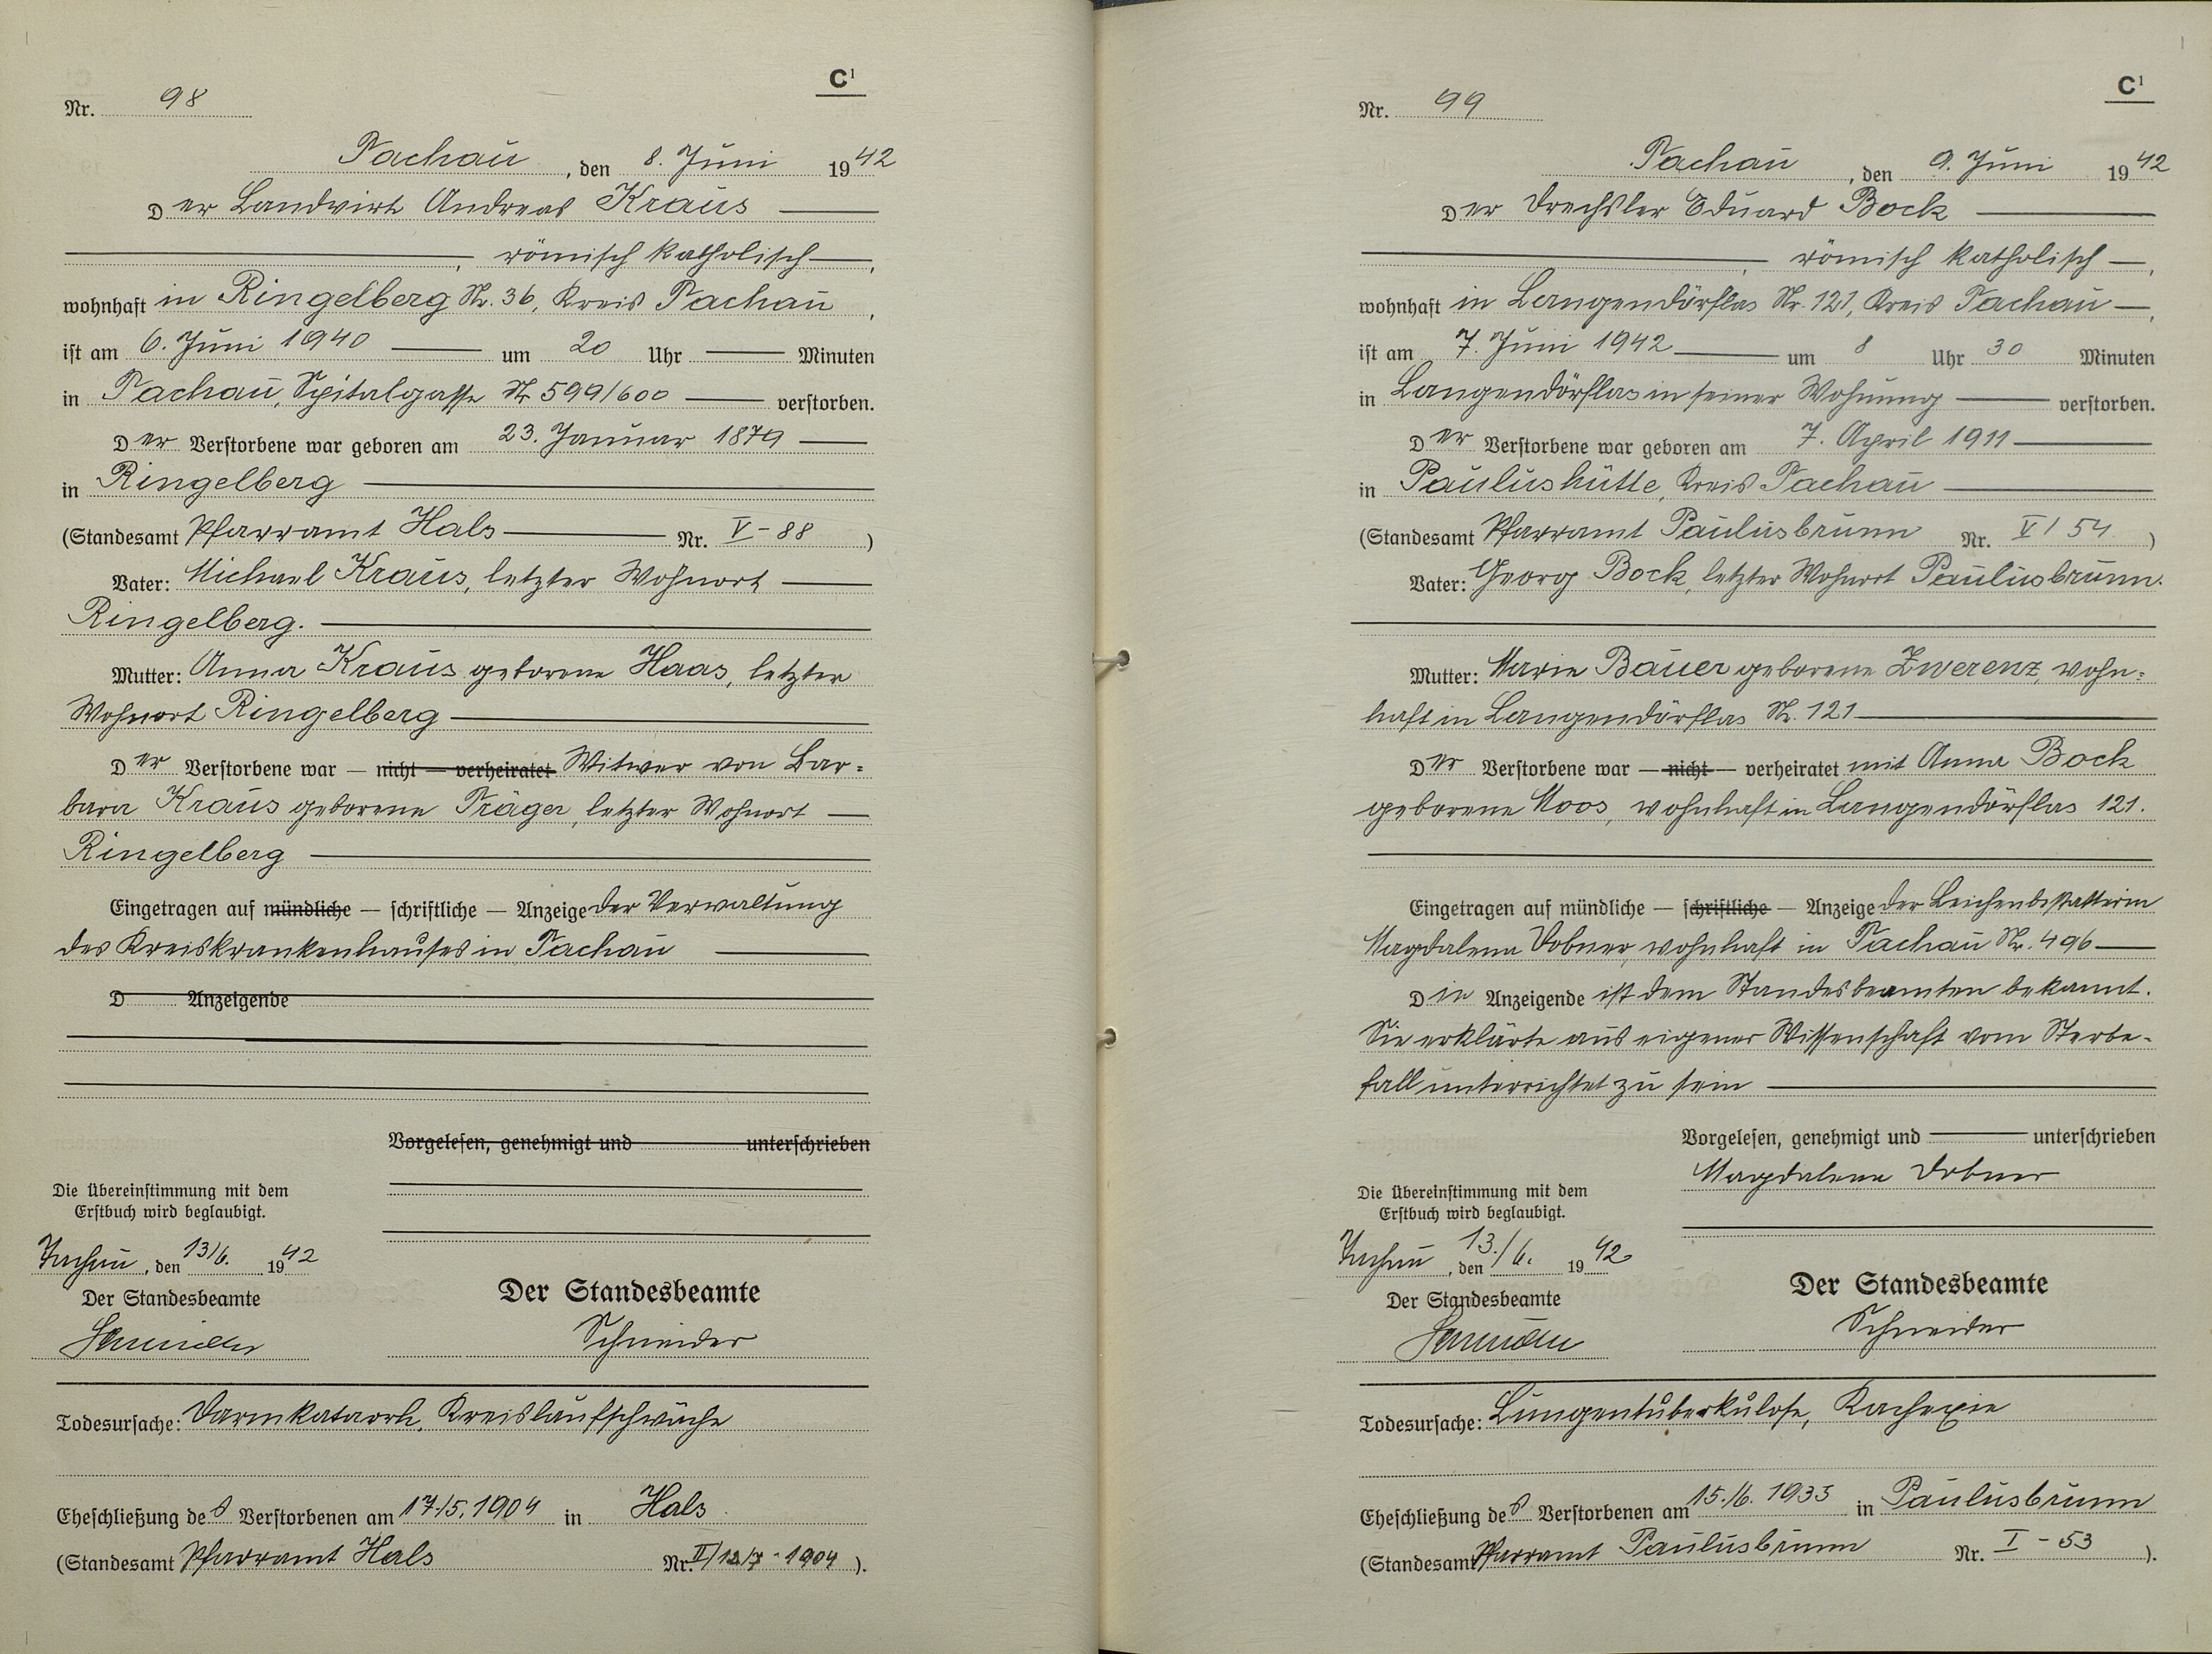 C¹
Nr. 98
Tachau, den 8. Juni 1942
Der Landwirt Andreas Kraus
römisch katholisch,
wohnhaft in Ringelberg Nr. 36, Kreis Tachau,
ist am 6. Juni 1940 um 20 Uhr Minuten
in Tachau, Spitalgasse Nr 599/600 verstorben.
Der Verstorbene war geboren am 23. Januar 1879
in Ringelberg
(Standesamt Pfarramt Hals Nr. V-88)
Vater: Michael Kraus, letzter Wohnort
Ringelberg.
Mutter: Anna Kraus geborene Haas, letzter
Wohnort Ringelberg
Der Verstorbene war — nicht — verheiratet Witwer von Bar=
bara Kraus geborene Träger, letzter Wohnort
Ringelberg
Eingetragen auf mündliche — schriftliche — Anzeige der Verwaltung
des Kreiskrankenhauses in Tachau
D Anzeigende
Vorgelesen, genehmigt und unterschrieben
Die Übereinstimmung mit dem
Erstbuch wird beglaubigt.
Tachau, den 13/6. 1942
Der Standesbeamte
Der Standesbeamte
Schneider
Todesursache: Darmkatarrh, Kreislaufschwäche
Eheschließung des Verstorbenen am 17./5. 1904 in Hals
(Standesamt Pfarramt Hals Nr. 1904).
C¹
Nr. 99
Tachau, den 9. Juni 1942
Der Drechsler Eduard Bock
römisch katholisch,
wohnhaft in Langendörflas Nr. 121, Kreis Tachau,
ist am 7. Juni 1942 um 8 Uhr 30 Minuten
in Langendörflas in seiner Wohnung verstorben.
Der Verstorbene war geboren am 7. April 1911
in Paulushütte, Kreis Tachau
(Standesamt Pfarramt Paulusbrunn Nr. V/54)
Vater: Georg Bock, letzter Wohnort Paulusbrunn.
Mutter: Marie Bauer geborene Zwerenz, wohn=
haft in Langendörflas Nr. 121
Der Verstorbene war — nicht — verheiratet mit Anna Bock
geborene Moos, wohnhaft in Langendörflas 121.
Eingetragen auf mündliche — schriftliche — Anzeige der Leichenbestatterin
Magdalena Dobner, wohnhaft in Tachau Nr. 496
Die Anzeigende ist dem Standesbeamten bekannt.
Sie erklärte aus eigener Wissenschaft vom Sterbe-
fall unterrichtet zu sein
Vorgelesen, genehmigt und unterschrieben
Magdalena Dobner
Die Übereinstimmung mit dem
Erstbuch wird beglaubigt.
Tachau, den 13./6. 1942
Der Standesbeamte
Der Standesbeamte
Schneider
Todesursache: Lungentuberkulose, Kachexie
Eheschließung des Verstorbenen am 15./6. 1935 in Paulusbrunn
(Standesamt Pfarramt Paulusbrunn Nr. I-53).